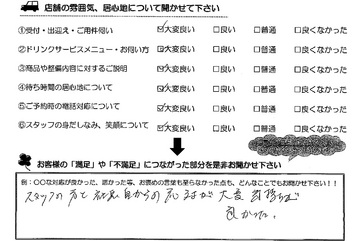 店舗の雰囲気、居心地について聞かせて下さい
①受付・出迎え・ご用件伺い ☑大変良い □良い □普通 □良くなかった
②ドリンクサービスメニュー・お伺い方 ☑大変良い □良い □普通 □良くなかった
③商品や整備内容に対するご説明 ☑大変良い □良い □普通 □良くなかった
④待ち時間の居心地について ☑大変良い □良い □普通 □良くなかった
⑤ご予約時の電話対応について ☑大変良い □良い □普通 □良くなかった
⑥スタッフの身だしなみ、笑顔について ☑大変良い □良い □普通 □良くなかった
お客様の「満足」や「不満足」につながった部分を是非お聞かせ下さい
例：○○な対応が良かった、悪かった等、お褒めの言葉も至らなかった点も、どんなことでもお聞かせ下さい！！
スタッフの方と 自からの 応対が 大変 気持ちが
良かった。